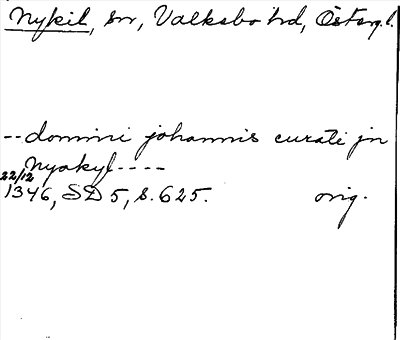 Nykil, sn, Valkebo hd, Östergl.
-- domini johannis curati jn
Nyakyl ----
22/12
1346, SD 5, s. 625. orig.